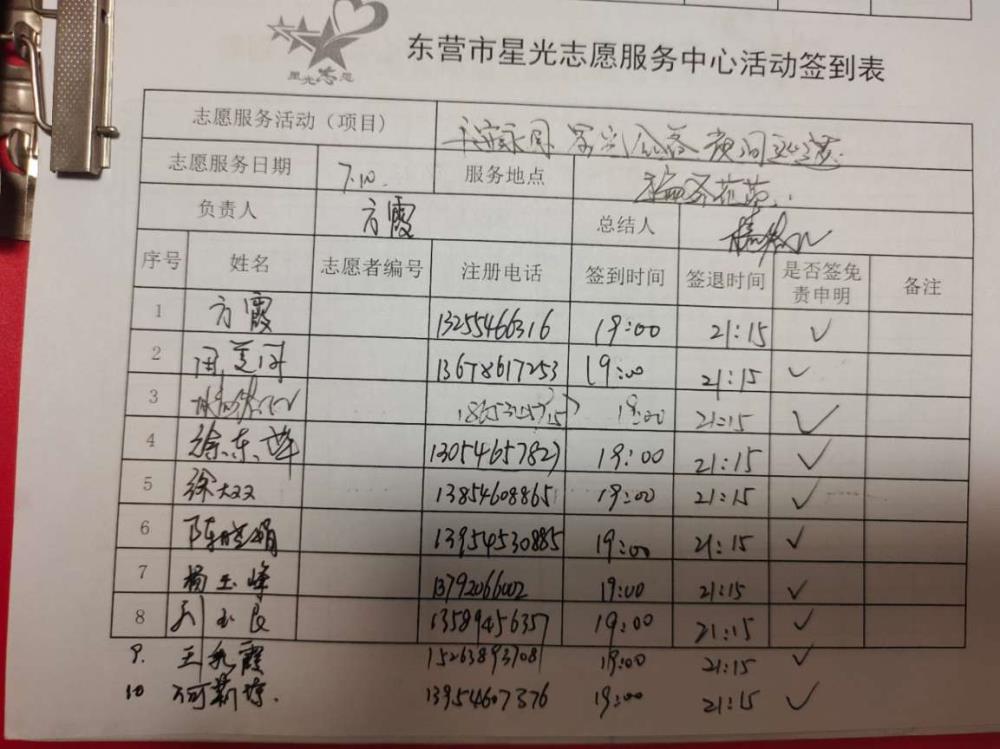 星光志愿
东营市星光志愿服务中心活动签到表
志愿服务活动（项目）
志愿服务日期 7.10. 服务地点
负责人 方霞 总结人
序号 姓名 志愿者编号 注册电话 签到时间 签退时间 是否签免责申明 备注
1 方霞 13255466316 19:00 21:15 ✓
2 13678617253 19:00 21:15 ✓
3 19:00 21:15 ✓
4 徐东 13054657827 19:00 21:15 ✓
5 徐大双 13854608865 19:00 21:15 ✓
6 陈晓娟 13954530885 19:00 21:15 ✓
7 杨玉峰 13792066002 19:00 21:15 ✓
8 玉良 13589456357 19:00 21:15 ✓
9. 王 霞 15263893708 19:00 21:15 ✓
10 13954607376 19:00 21:15 ✓